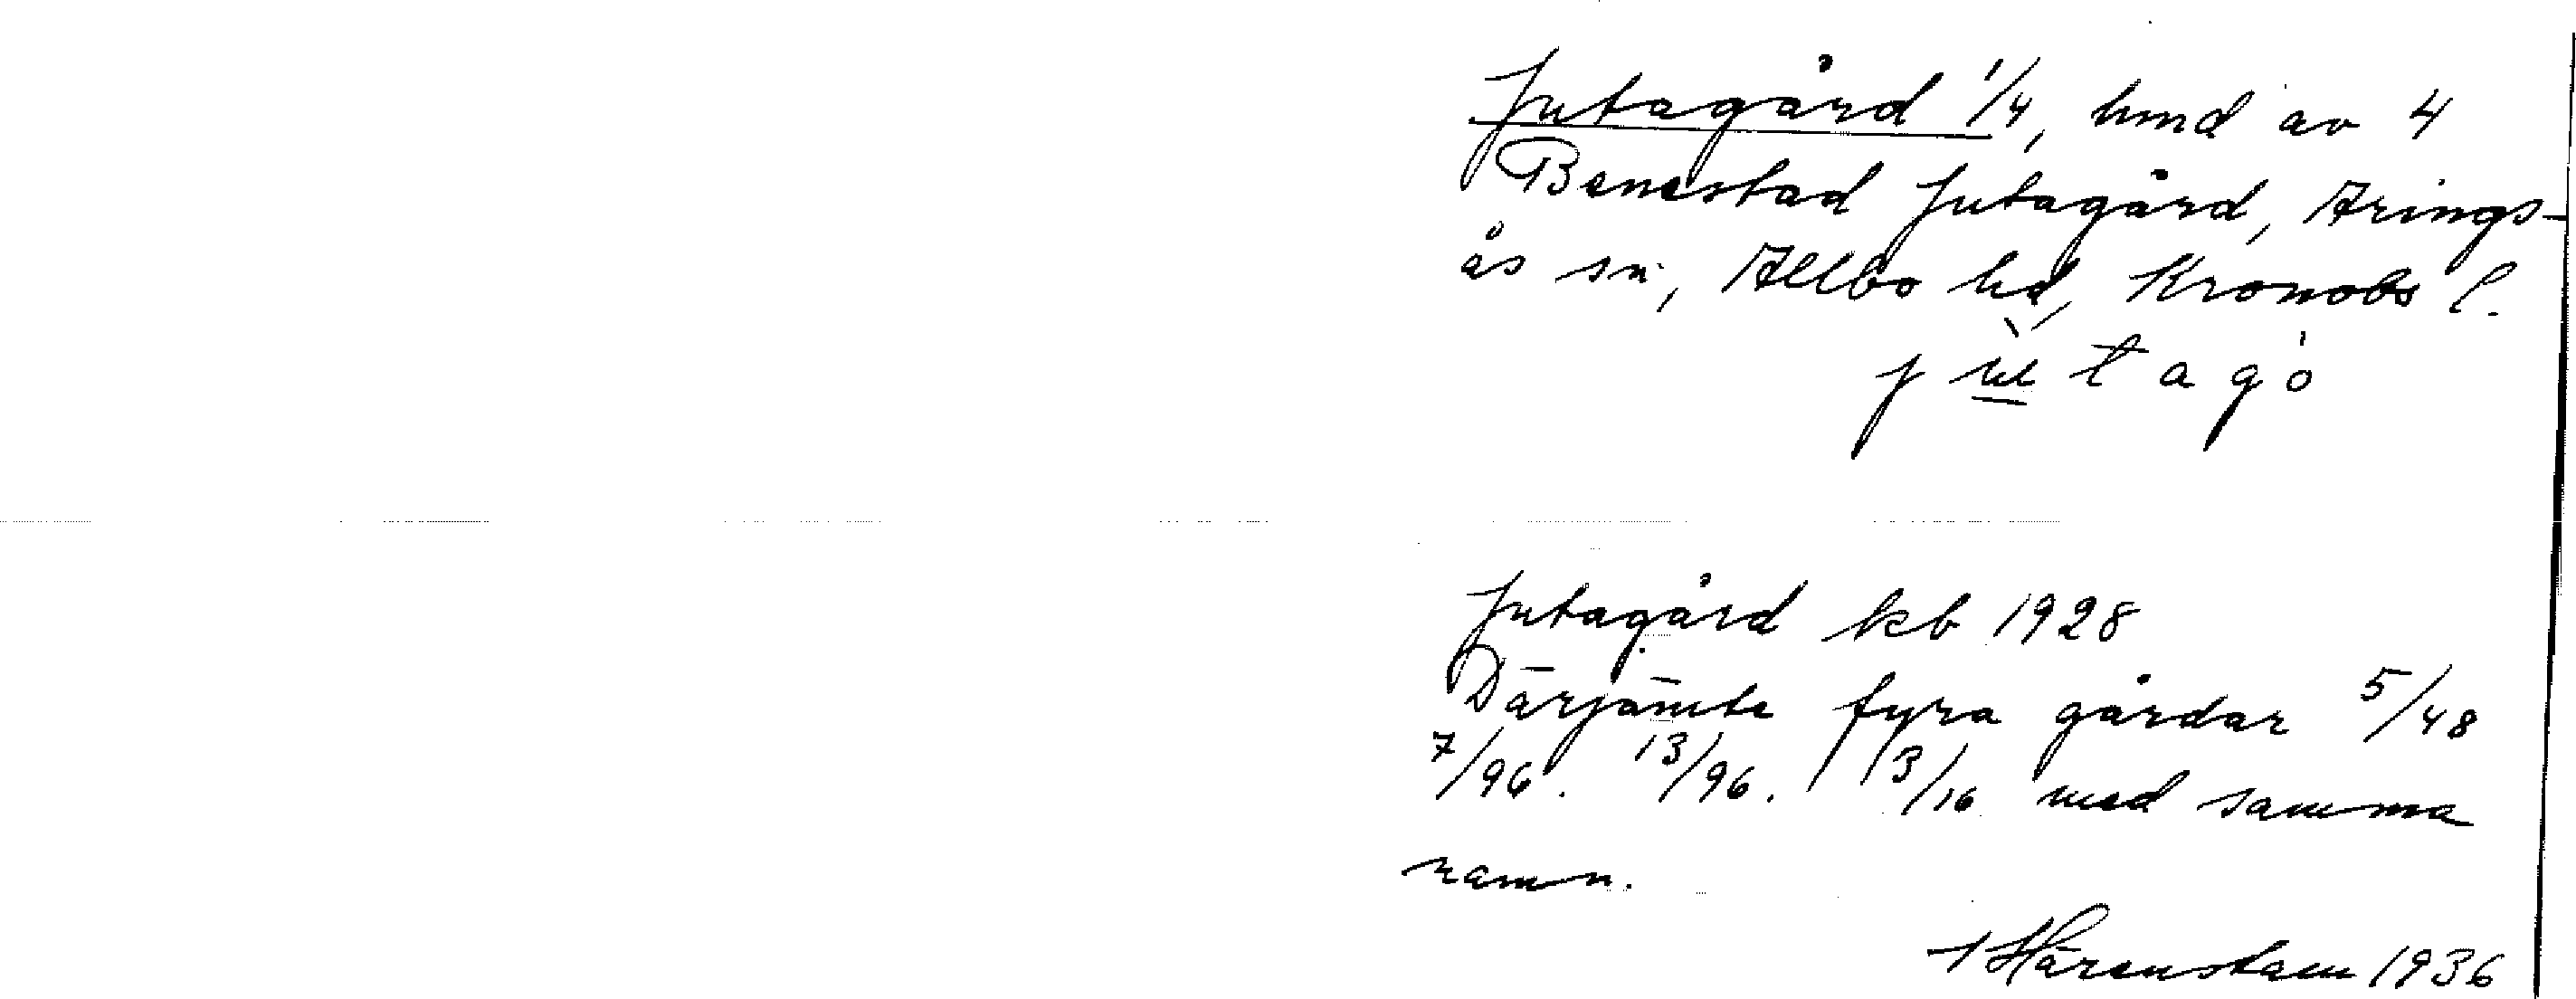 Jutagård 1/4, hmd av 4
Benestad Jutagård, Arings-
ås sn, Allbo hd, Kronobs l.
jùtagó
Jutagård kb 1928
Därjämte fyra gårdar 5/48
7/96. 13/96. 3/16 med samma
namn.
Härenstam 1936